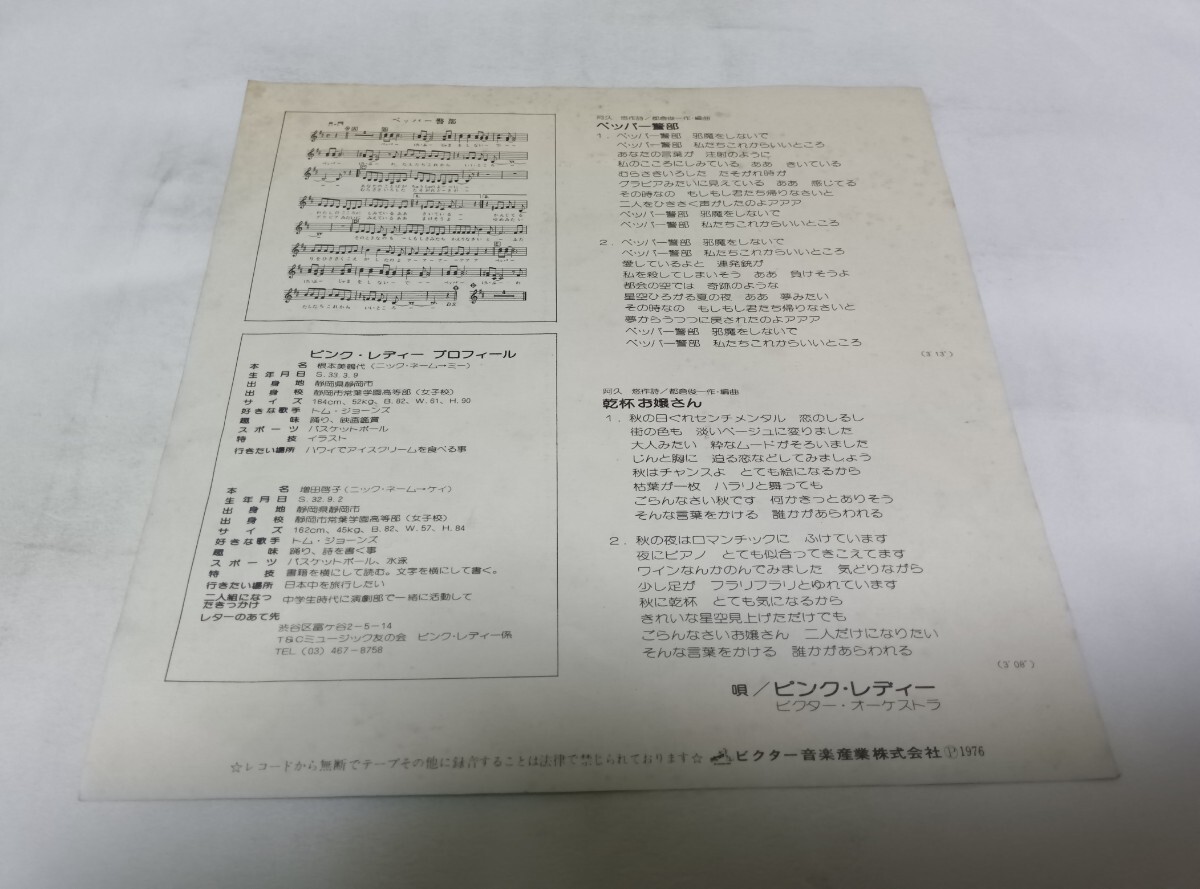 ペッパー警部
ピンク・レディー プロフィール
本名 根本美鶴代(ニック・ネーム→ミー)
生年月日 S.33.3.9
出身地 静岡県静岡市
出身校 静岡市常葉学園高等部(女子校)
サイズ 164cm、52kg、B.82、W.61、H.90
好きな歌手 トム・ジョーンズ
趣味 踊り、映画鑑賞
スポーツ バスケットボール
特技 イラスト
行きたい場所 ハワイでアイスクリームを食べる事
本名 増田啓子(ニック・ネーム→ケイ)
生年月日 S.32.9.2
出身地 静岡県静岡市
出身校 静岡市常葉学園高等部(女子校)
サイズ 162cm、45kg、B.82、W.57、H.84
好きな歌手 トム・ジョーンズ
趣味 踊り、詩を書く事
スポーツ バスケットボール、水泳
特技 書籍を横にして読む。文字を横にして書く。
行きたい場所 日本中を旅行したい
二人組になったきっかけ 中学生時代に演劇部で一緒に活動して
レターのあて先
渋谷区富ケ谷2-5-14
T&Cミュージック友の会 ピンク・レディー係
TEL (03) 467-8758
阿久 悠作詩/都倉俊一作・編曲
ペッパー警部
1. ペッパー警部 邪魔をしないで
ペッパー警部 私たちこれからいいところ
あなたの言葉が 注射のように
私のこころにしみている ああ きいている
むらさきいろした たそがれ時が
グラビアみたいに見えている ああ 感じてる
その時なの もしもし君たち帰りなさいと
二人をひきさく声がしたのよアアア
ペッパー警部 邪魔をしないで
ペッパー警部 私たちこれからいいところ
2. ペッパー警部 邪魔をしないで
ペッパー警部 私たちこれからいいところ
愛しているよと 連発銃が
私を殺してしまいそう ああ 負けそうよ
都会の空では 奇跡のような
星空ひろがる夏の夜 ああ 夢みたい
その時なの もしもし君たち帰りなさいと
夢からうつつに戻されたのよアアア
ペッパー警部 邪魔をしないで
ペッパー警部 私たちこれからいいところ
(3′13″)
阿久 悠作詩/都倉俊一作・編曲
乾杯お嬢さん
1. 秋の日ぐれセンチメンタル 恋のしるし
街の色も 淡いベージュに変りました
大人みたい 粋なムードがそろいました
じんと胸に 迫る恋などしてみましょう
秋はチャンスよ とても絵になるから
枯葉が一枚 ハラリと舞っても
ごらんなさい秋です 何かきっとありそう
そんな言葉をかける 誰かがあらわれる
2. 秋の夜はロマンチックに ふけています
夜にピアノ とても似合ってきこえてます
ワインなんかのんでみました 気どりながら
少し足が フラリフラリとゆれています
秋に乾杯 とても気になるから
きれいな星空見上げただけでも
ごらんなさいお嬢さん 二人だけになりたい
そんな言葉をかける 誰かがあらわれる
(3′08″)
唄/ピンク・レディー
ビクター・オーケストラ
☆レコードから無断でテープその他に録音することは法律で禁じられております☆ ビクター音楽産業株式会社 Ⓟ1976